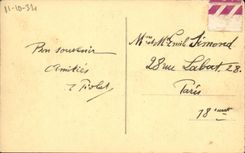 11-10-34
Bon souvenir
Amitiés
Mr et Me Emil Simond
28 rue Labat 28
Paris
18